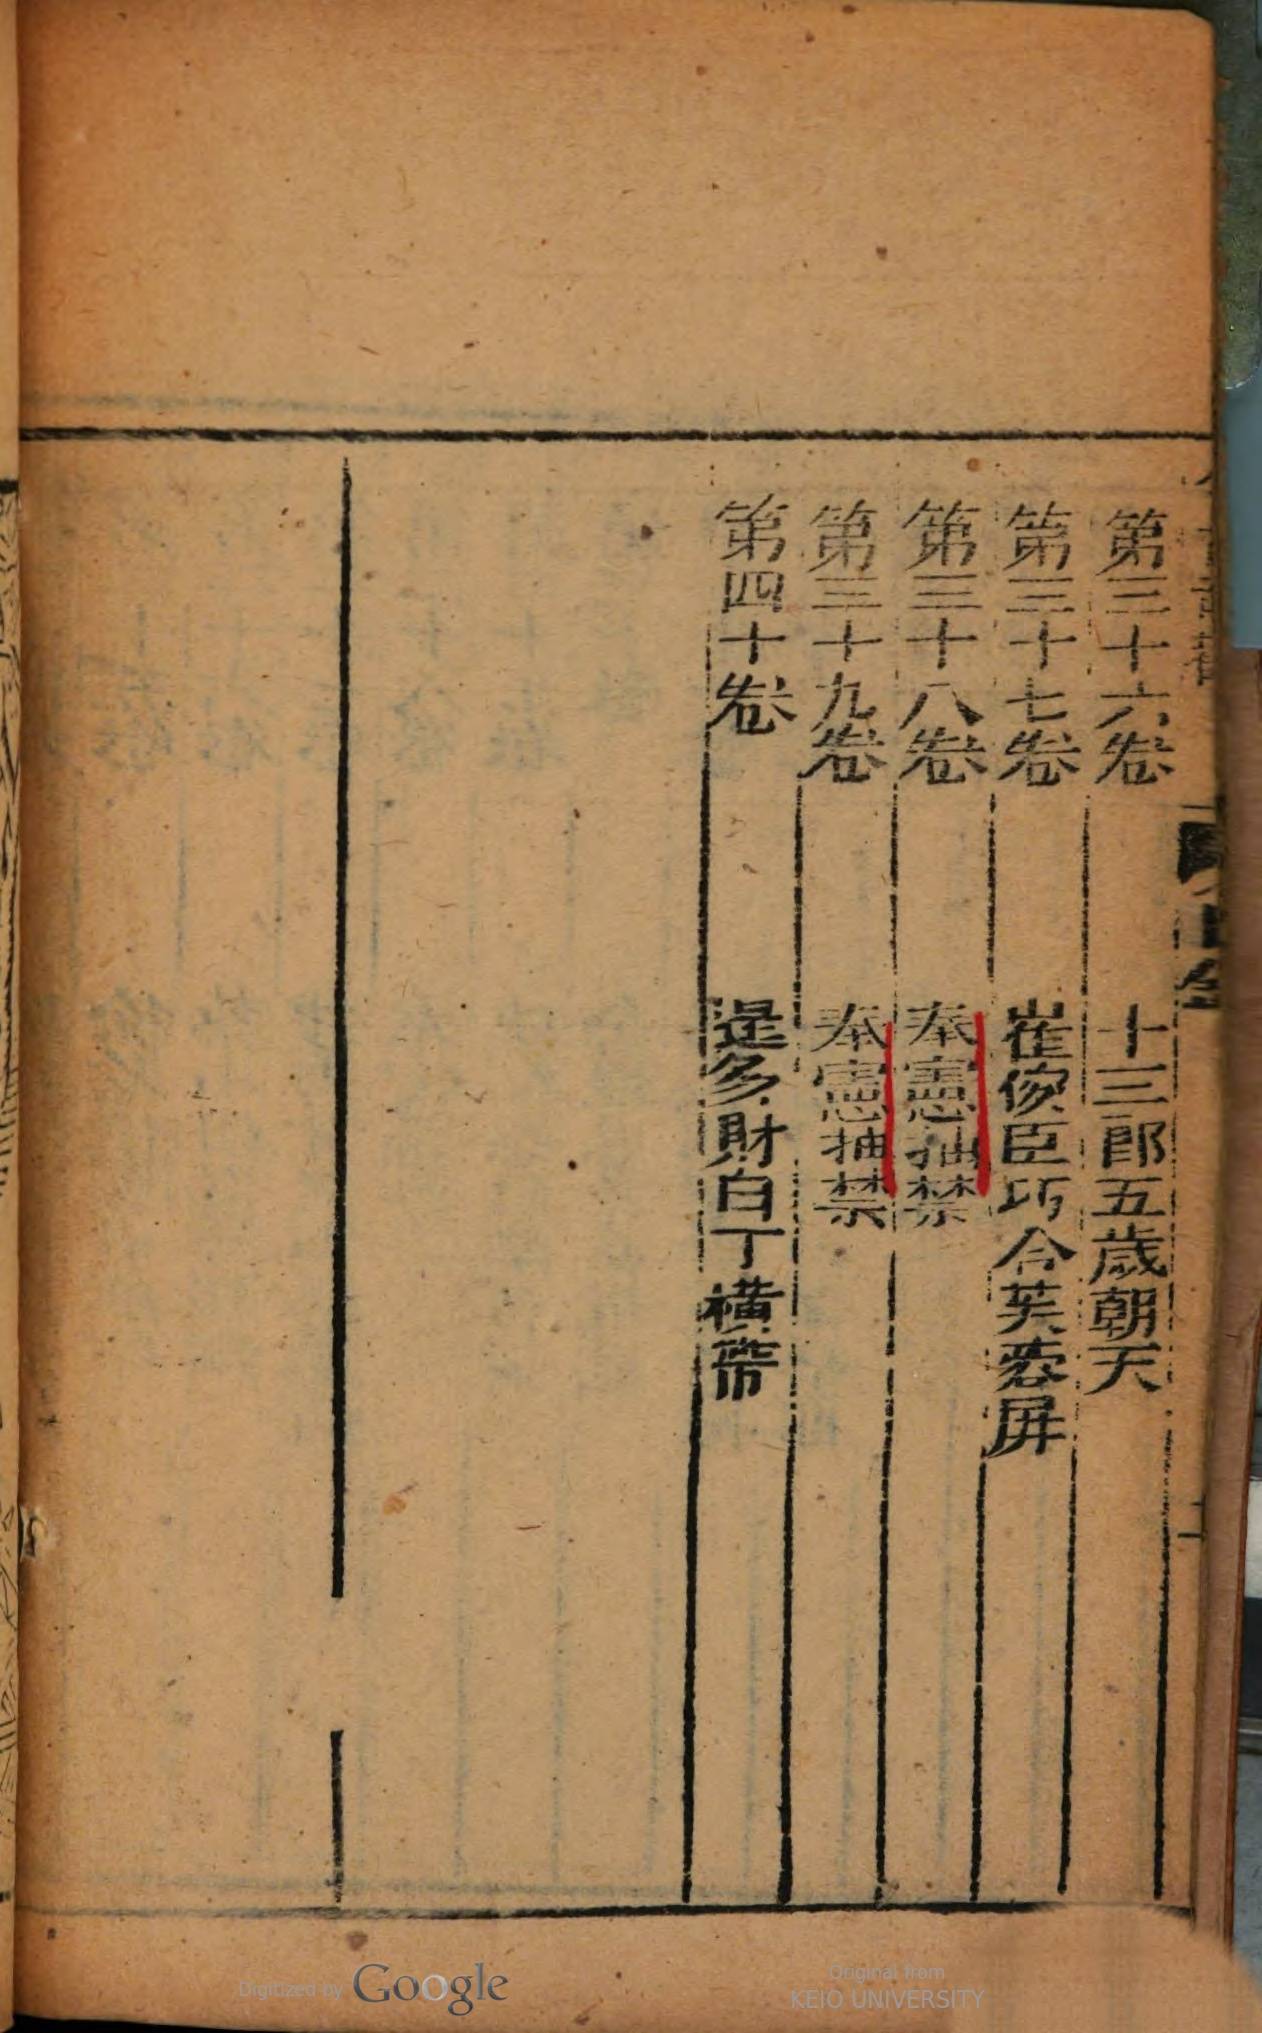 第三十六卷　十三郎五歲朝天
第三十七卷　崔俊臣巧合芙蓉屏
第三十八卷　奉憲抽禁
第三十九卷　奉憲抽禁
第四十卷　逞多財白丁橫帶
Digitized by Google
Original from
KEIO UNIVERSITY